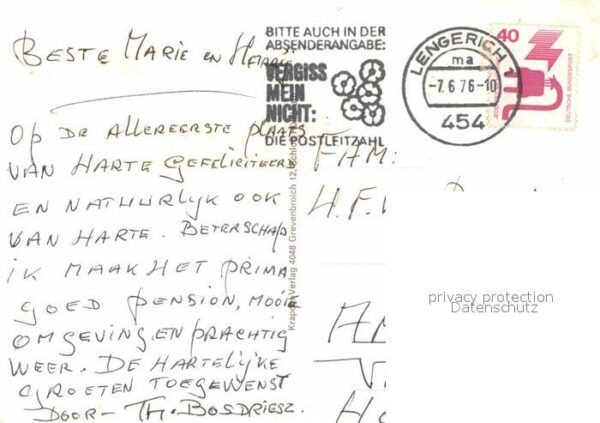 BITTE AUCH IN DER
ABSENDERANGABE:
VERGISS
MEIN
NICHT:
DIE POSTLEITZAHL
LENGERICH 1
ma
-7.6.76-10
454
40
DEUTSCHE BUNDESPOST
BESTE MARIE en
OP DE ALLEREERSTE PLAATS
VAN HARTE GEFELICITEERD
EN NATUURLYK OOK
VAN HARTE. BETERSCHAP
IK MAAK HET PRIMA
GOED PENSION, MOOIE
OMGEVING, EN PRACHTIG
WEER. DE HARTELYKE
GROETEN TOEGEWENST
DOOR- TH. BOSDRIESZ.
Verlag 4048 Grevenbroich 12,
FAM:
H. F. V
privacy protection
Datenschutz